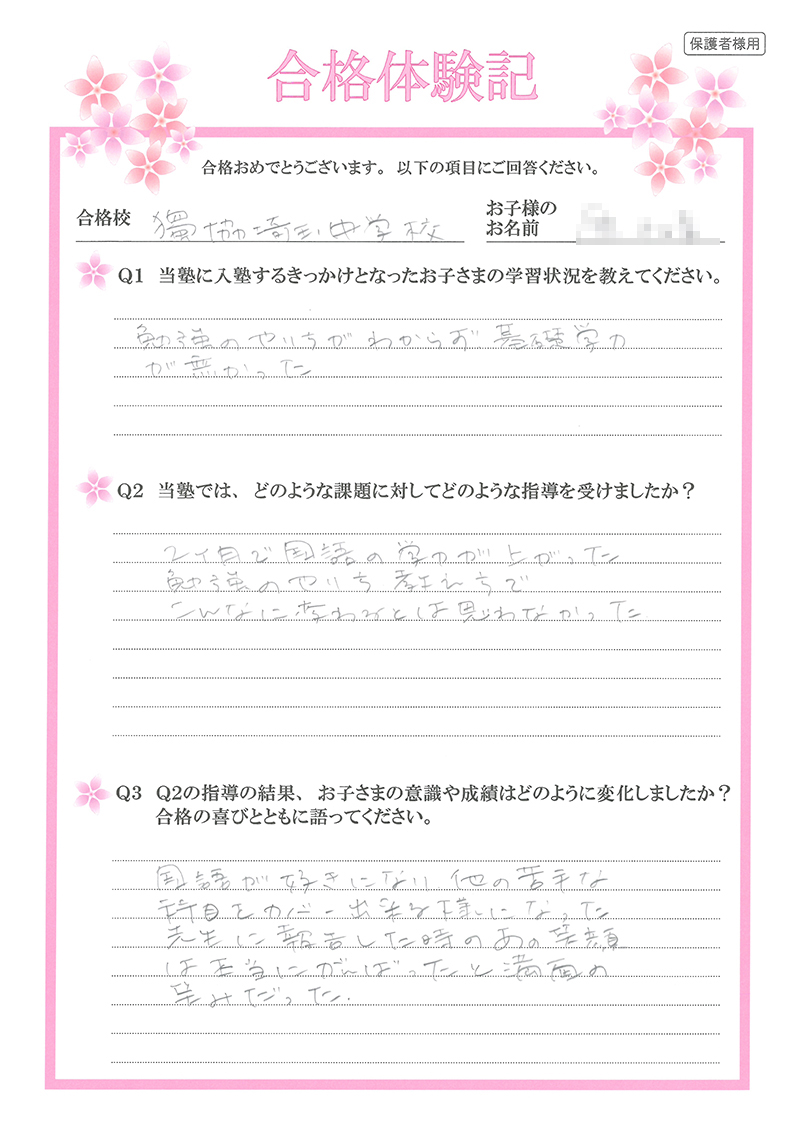 保護者様用
合格体験記
合格おめでとうございます。以下の項目にご回答ください。
合格校 獨協埼玉中学校
お子様の
お名前
Q1 当塾に入塾するきっかけとなったお子さまの学習状況を教えてください。
勉強のやり方がわからず 基礎学力
が無かった
Q2 当塾では、どのような課題に対してどのような指導を受けましたか？
2ヶ月で国語の学力が上がった
勉強のやり方 教え方で
こんなに変わるとは思わなかった
Q3 Q2の指導の結果、お子さまの意識や成績はどのように変化しましたか？
合格の喜びとともに語ってください。
国語が好きになり 他の苦手な
科目をカバー出来る様になった
先生に報告した時のあの笑顔
は本当にがんばったと満面の
笑みだった.